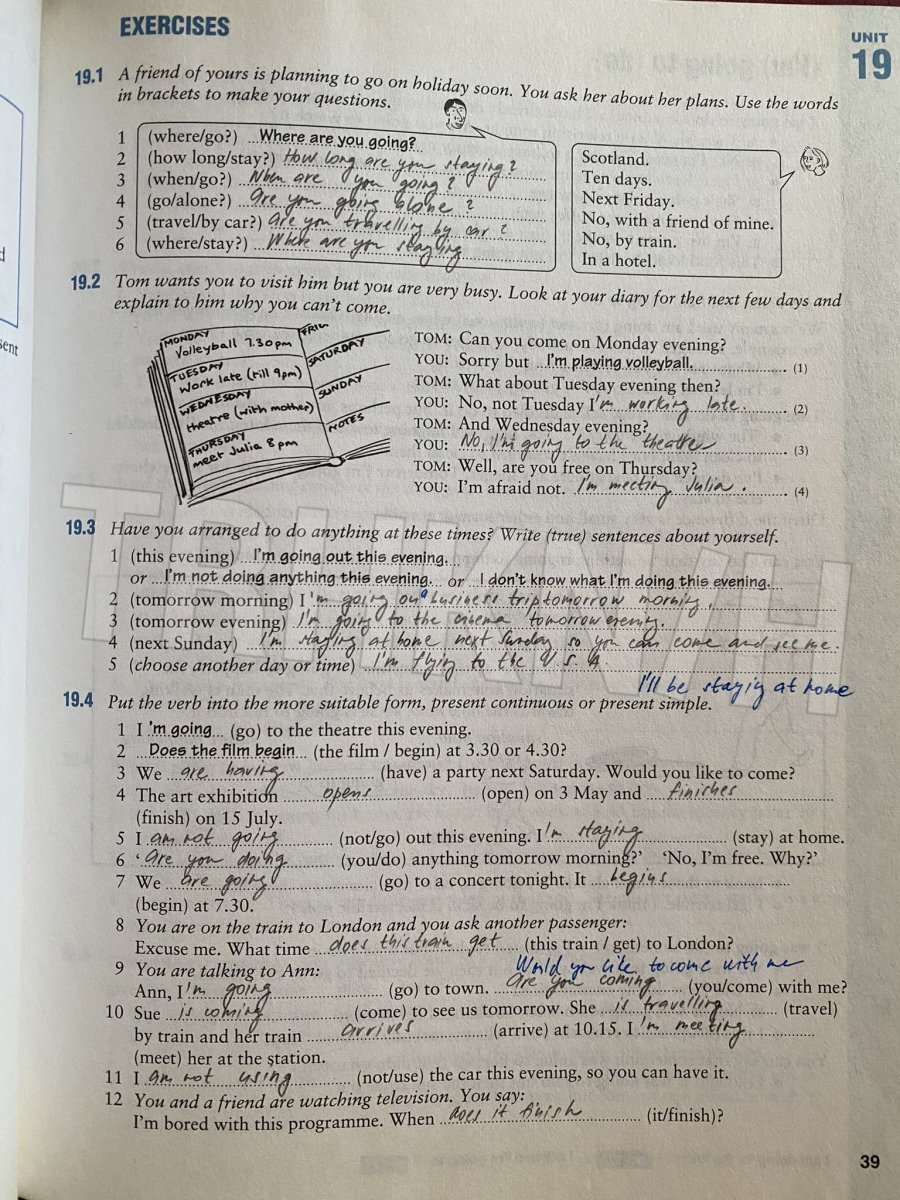 EXERCISES
UNIT
19
19.1 A friend of yours is planning to go on holiday soon. You ask her about her plans. Use the words
in brackets to make your questions.
1 (where/go?) Where are you going?
2 (how long/stay?) How long are you staying?
3 (when/go?) When are you going?
4 (go/alone?) are you going alone?
5 (travel/by car?) are you travelling by car?
6 (where/stay?) Where are you staying
Scotland.
Ten days.
Next Friday.
No, with a friend of mine.
No, by train.
In a hotel.
19.2 Tom wants you to visit him but you are very busy. Look at your diary for the next few days and
explain to him why you can't come.
MONDAY
Volleyball 7.30pm
TUESDAY
Work late (till 9pm)
WEDNESDAY
theatre (with mother)
THURSDAY
meet Julia 8pm
FRI
SATURDAY
SUNDAY
NOTES
TOM: Can you come on Monday evening?
YOU: Sorry but I'm playing volleyball. (1)
TOM: What about Tuesday evening then?
YOU: No, not Tuesday I'm working late. (2)
TOM: And Wednesday evening?
YOU: No, I'm going to the theatre (3)
TOM: Well, are you free on Thursday?
YOU: I'm afraid not. I'm meeting Julia. (4)
19.3 Have you arranged to do anything at these times? Write (true) sentences about yourself.
1 (this evening) I'm going out this evening.
or I'm not doing anything this evening. or I don't know what I'm doing this evening.
2 (tomorrow morning) I'm going on a business trip tomorrow morning.
3 (tomorrow evening) I'm going to the cinema tomorrow evening.
4 (next Sunday) I'm staying at home next Sunday so you can come and see me.
5 (choose another day or time) I'm flying to the U.S.A.
I'll be stayig at home
19.4 Put the verb into the more suitable form, present continuous or present simple.
1 I 'm going (go) to the theatre this evening.
2 Does the film begin (the film / begin) at 3.30 or 4.30?
3 We are having (have) a party next Saturday. Would you like to come?
4 The art exhibition opens (open) on 3 May and finishes
(finish) on 15 July.
5 I am not going (not/go) out this evening. I'm staying (stay) at home.
6 'are you doing (you/do) anything tomorrow morning?' 'No, I'm free. Why?'
7 We are going (go) to a concert tonight. It begins
(begin) at 7.30.
8 You are on the train to London and you ask another passenger:
Excuse me. What time does this train get (this train / get) to London?
9 You are talking to Ann:
Would you like to come with me
Ann, I'm going (go) to town. are you coming (you/come) with me?
10 Sue is coming (come) to see us tomorrow. She is travelling (travel)
by train and her train arrives (arrive) at 10.15. I'm meeting
(meet) her at the station.
11 I am not using (not/use) the car this evening, so you can have it.
12 You and a friend are watching television. You say:
I'm bored with this programme. When does it finish (it/finish)?
39